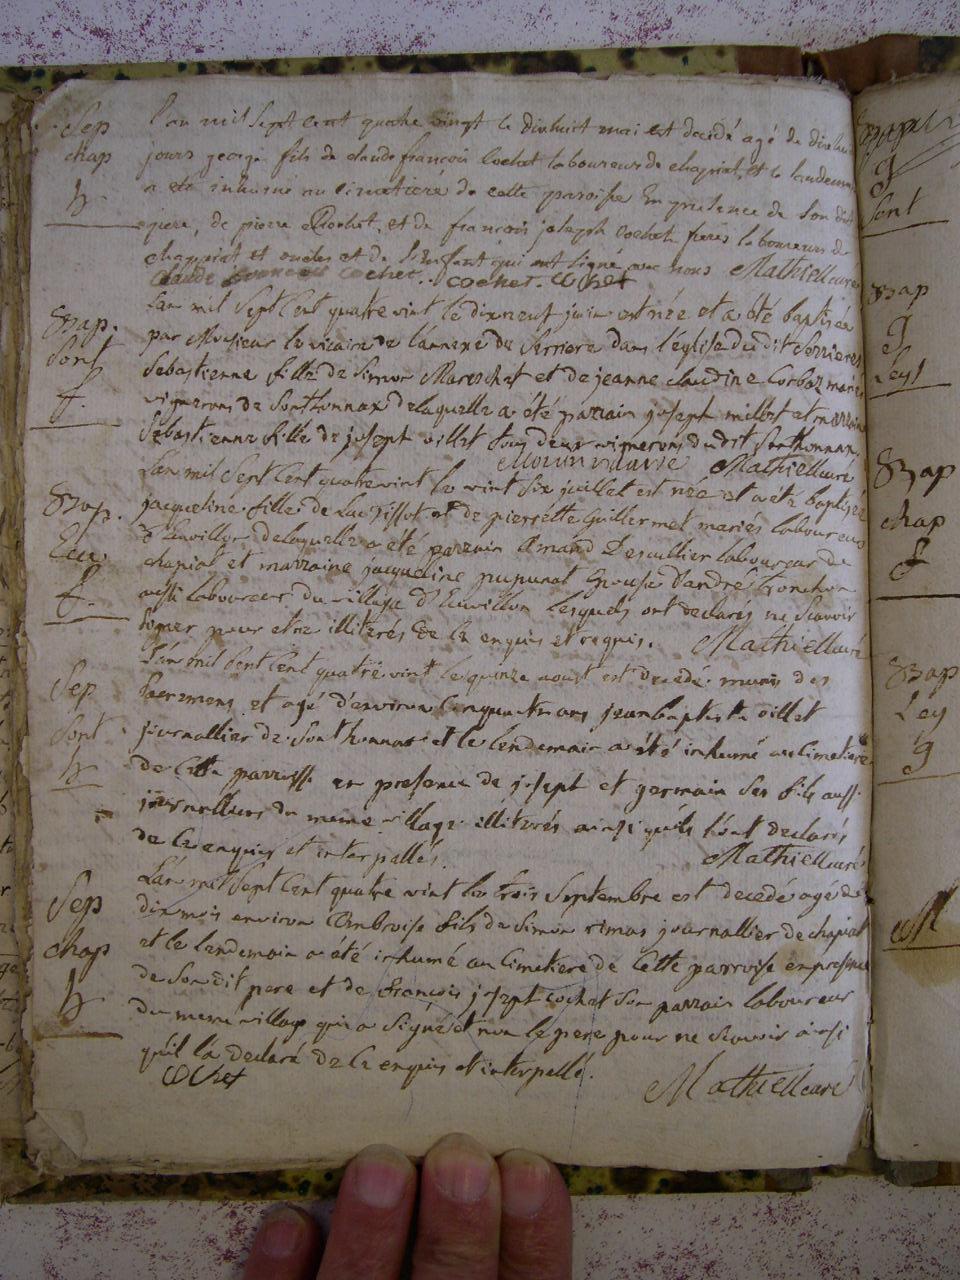 Sep
chap
h
L'an mil sept cent quatre vingt le dixhuit mai est decedé agé de dix huit
jours george fils de claude francois cochet laboureur de chapiat, et le landemain
a eté inhumé au cimetiere de cette paroisse En presence de son dit
pere, de pierre Cochet, et de francois joseph cochet freres laboureurs de
chapiat et oncles et de l'enfant qui ont signé avec nous Mathieu curé
Claude cochet. cochet. Cochet
Bap.
Sont
f.
L'an mil sept Cent quatre vint le dixneuf juin est née et a été baptisée
par Monsieur le vicaire de l'annexe de Serriere dans l'église du dit Serrieres
Sebastienne fille de Simon Mareschat et de jeanne claudine Corboz mariés
vignerons de Sonthonnax de laquelle a été parrain josept millet et marraine
Sebastienne fille de josept villet tous deux vignerons du dit Sonthonnax
Morin vicaire Mathieu curé
Bap.
Ecu.
f.
L'an mil Sept Cent quatre vint le vint Six juillet est née et a été baptisée
jacqueline fille de Luc Tissot et de pierrette guillermet mariés laboureurs
d'Ecuvillon de laquelle a été parrain Amand D'escullier laboureur de
chapiat et marraine jacqueline pupunat Epouse d'andré tronchon
aussi laboureur du village d'Ecuvillon lesquels ont declarés ne Scavoir
signer pour etre illiterés de ce enquis et requis. Mathieu curé
Sep
Sont
h
L'an mil Sept Cent quatre vint le quinze aoust est decedé munis des
Sacremens et agé d'environ Cinquante ans jean baptiste villet
journallier de Sonthonnax et le lendemain a été inhumé au Cimetiere
de Cette parroisse en presence de josept et germain Ses fils aussi
journalliers du meme village illiterés ainsi qu'ils l'ont declarés
de Ce enquis et interpellés. Mathieu curé
Sep
chap
h
L'an mil Sept Cent quatre vint le trois Septembre est decedé agé de
dix mois environ Ambroise fils de Simon rimas journallier de chapiat
et le lendemain a été inhumé au Cimetiere de Cette parroise en presence
de Son dit pere et de francois josept cochet Son parrain laboureur
du meme village qui a Signé et non le pere pour ne Scavoir ainsi
qu'il l'a declaré de Ce enquis et interpellé.
Cochet Mathieu curé
Sont
Bap
g
Leyt
Bap
chap
f
Bap
Ley
g